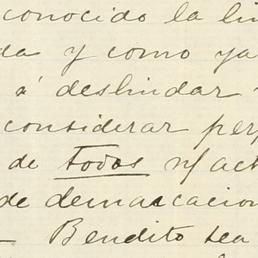 conocido la lin
da y como ya
á deslindar
considerar per
de todos n/ act
de demarcacion
Bendito sea